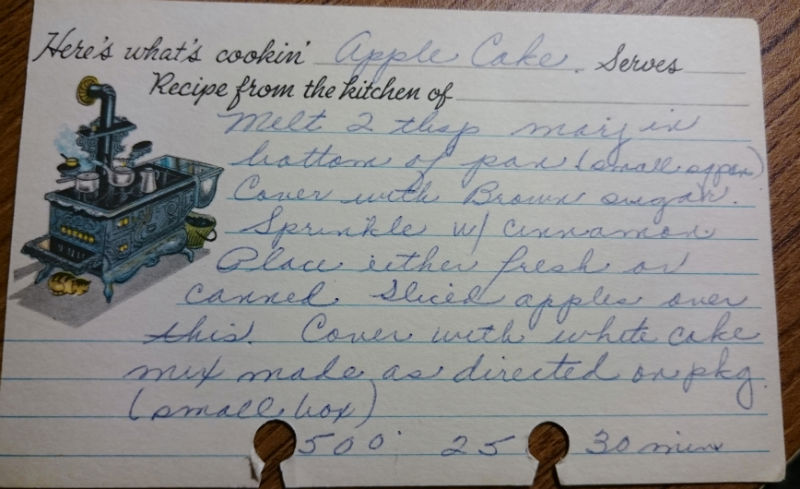 Here's what's cookin' Apple Cake. Serves
Recipe from the kitchen of
Melt 2 tbsp marg in
bottom of pan (small
Cover with Brown sugar.
Sprinkle w/ cinnamon
Place either fresh or
canned sliced apples over
this. Cover with white cake
mix made as directed on pkg.
(small box)
500° 25 30 min